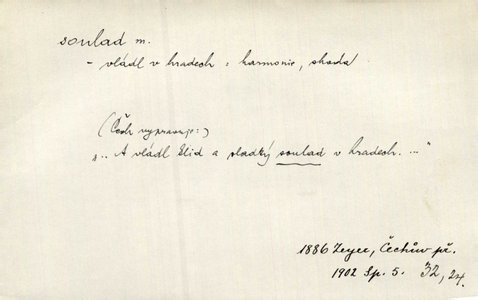 soulad m.
- vládl v hradech : harmonie, shoda
(Čech vypravuje:)
„.. A vládl klid a sladký soulad v hradech. ..."
1886 Zeyer, Čechův př.
1902 Sp. 5. 32, 24.